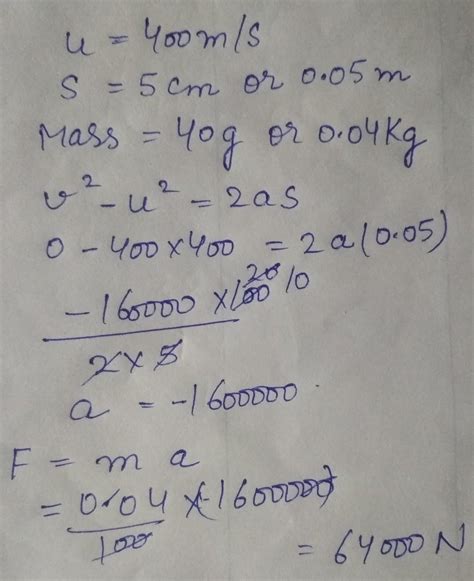 u = 400m/s
S = 5cm or 0.05m
Mass = 40g or 0.04Kg
v² - u² = 2as
0 - 400×400 = 2a(0.05)
-160000 ×100 20 10
2×5
a = -1600000
F = m a
= 0.04 ×(-1600000)
100
= 64000 N